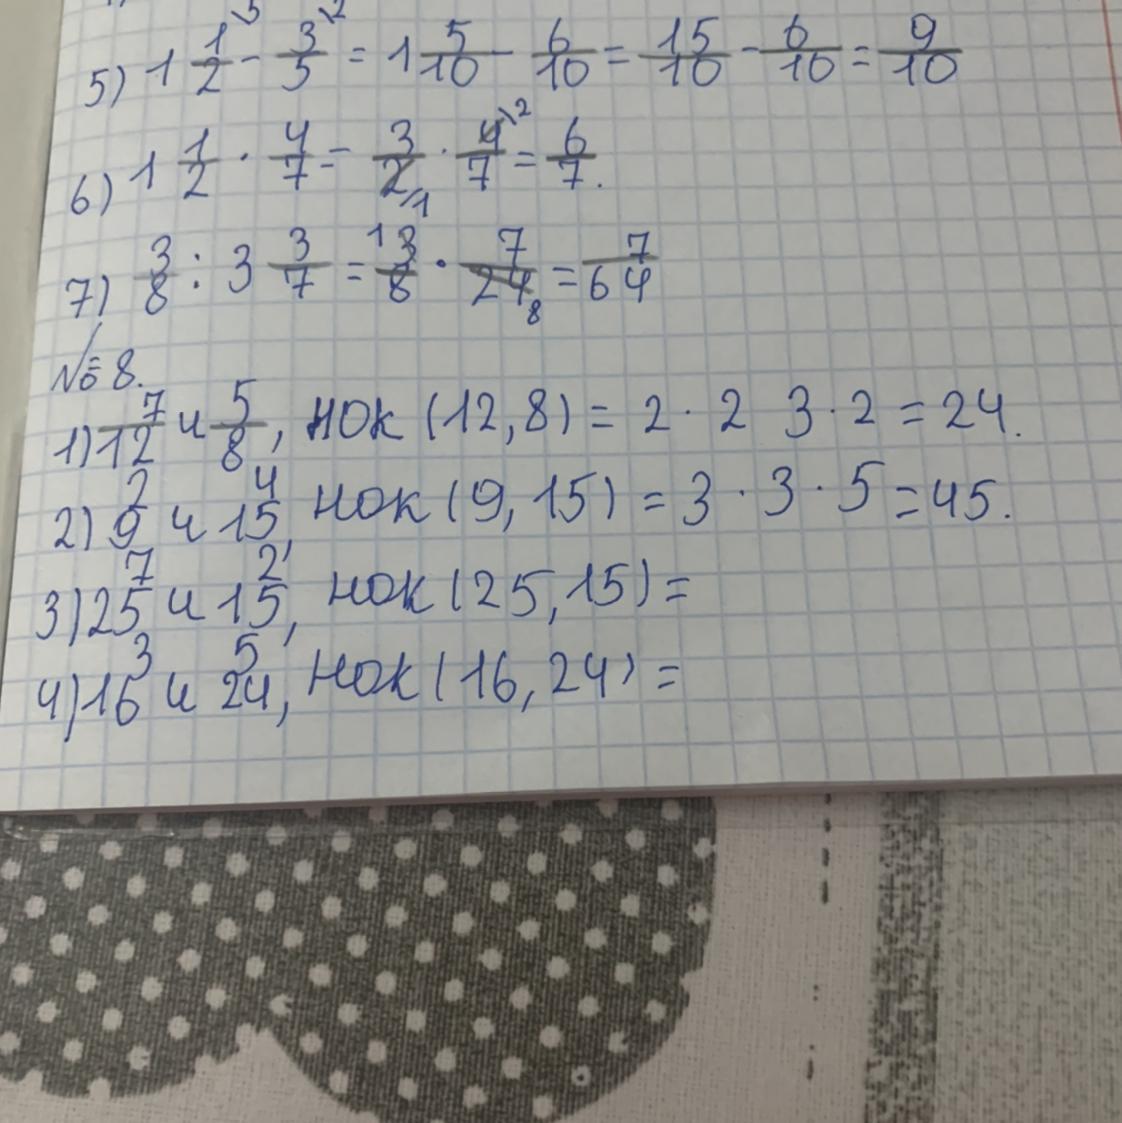 5) 1 1/2 \5 - 3/5 \2 = 1 5/10 - 6/10 = 15/10 - 6/10 = 9/10
6) 1 1/2 · 4/7 = 3/2 /1 · 4/7 \2 = 6/7.
7) 3/8 : 3 3/7 = 1 3/8 · 7/24 8 = 7/64
№ 8.
1) 7/12 и 5/8, НОК (12, 8) = 2 · 2 3 · 2 = 24.
2) 2/9 и 4/15, НОК (9, 15) = 3 · 3 · 5 = 45.
3) 7/25 и 2/15, НОК (25, 15) =
4) 3/16 и 5/24, НОК (16, 24) =